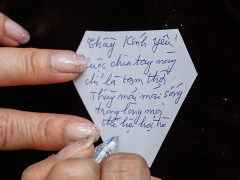 Thầy Kính yêu!
cuộc chia tay này
chỉ là tạm thời
Thầy mãi mãi sống
trong lòng mọi
thế hệ học trò